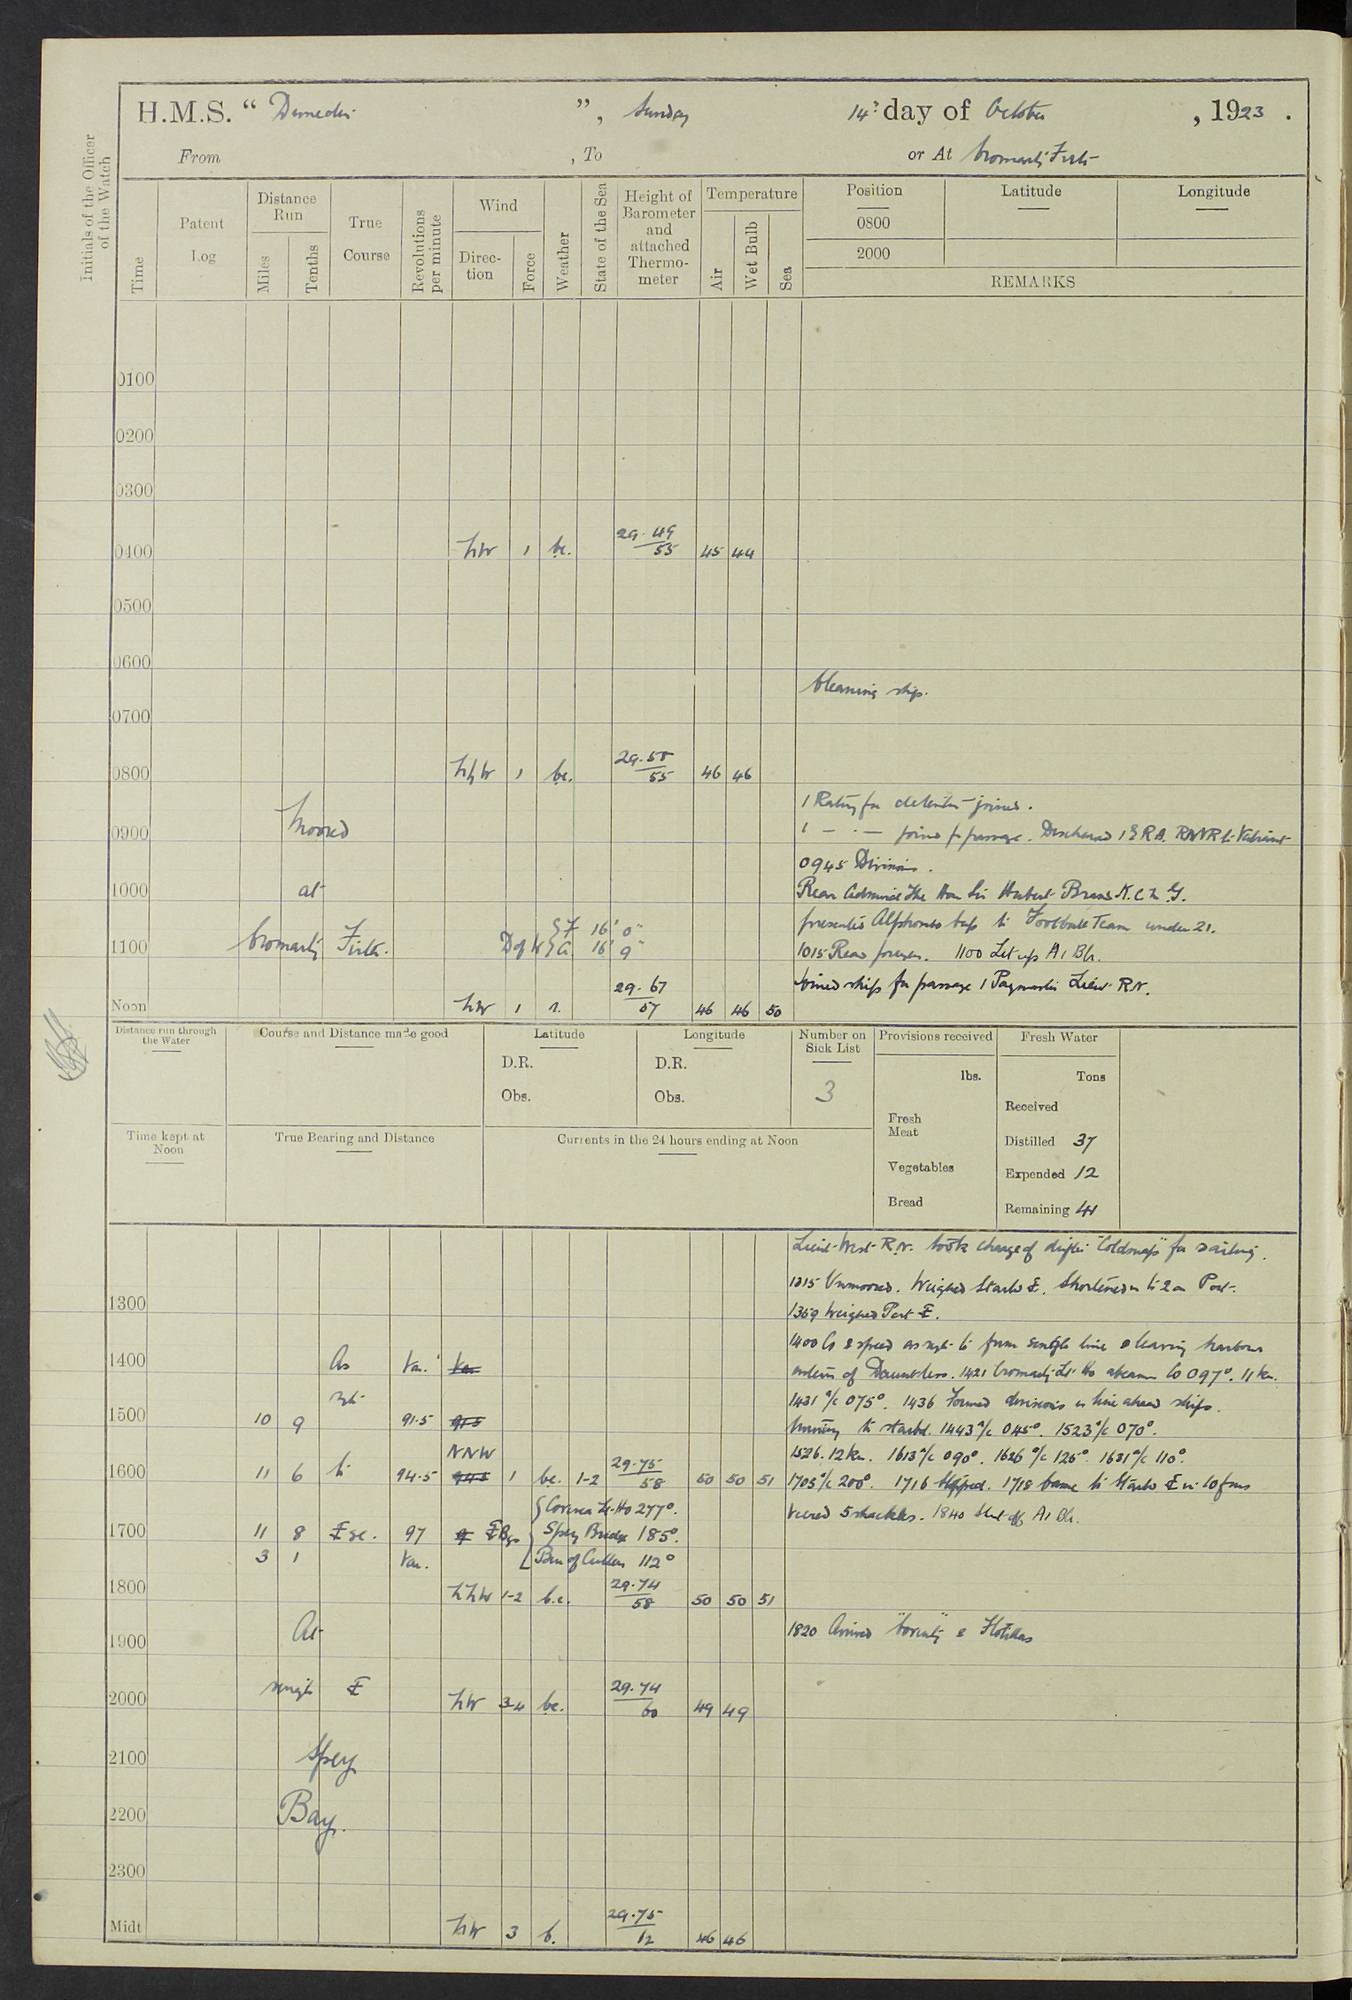 H.M.S. " Dunedin ", Sunday 14th day of October, 1923.
From , To or At Cromarty Firth
Initials of the Officer of the Watch
Time
Patent Log
Distance Run
Miles
Tenths
True Course
Revolutions per minute
Wind
Direction
Force
Weather
State of the Sea
Height of Barometer and attached Thermometer
Temperature
Air
Wet Bulb
Sea
Position Latitude Longitude
0800
2000
REMARKS
0100
0200
0300
0400 NW 1 bc. 29.49/55 45 44
0500
0600
Cleaning ship.
0700
0800 NNW 1 bc. 29.58/55 46 46
1 Rating for detention joined.
Moored
0900
1 — · — joined for passage. Discharged 1 ERA. RNVR to Valiant
0945 Divisions.
at
1000
Rear Admiral The Hon Sir Hubert Brand K.C.M.G.
presented Cup to Football Team under 21.
D of W { F 16' 0"
A 16' 9"
Cromarty Firth.
1100
1015 Read prayers. 1100 Lit up A1 Blr.
Joined ship for passage 1 Paymaster Lieut RN.
Noon NW 1 r. 29.67/57 46 46 50
Distance run through the Water
Course and Distance made good
Latitude
D.R.
Obs.
Longitude
D.R.
Obs.
Number on Sick List
3
Provisions received
lbs.
Fresh Meat
Vegetables
Bread
Fresh Water
Tons
Received
Distilled 37
Expended 12
Remaining 41
Time kept at Noon
True Bearing and Distance
Currents in the 24 hours ending at Noon
Lieut West R.N. took charge of drifter "Coldsnap" for sailing.
1315 Unmoored. Weighed Starbd ⚓. Shortened in to 2 on Port.
1300
1359 Weighed Port ⚓.
1400 Co & speed as reqte to form single line & leaving harbour
1400 As Var.
astern of Dauntless. 1421 Cromarty Lt. Ho abeam Co 097°. 11 kn.
reqte
1431 a/c 075°. 1436 Formed divisions in line ahead ships.
1500 10 9 91.5
turning to starbd. 1443 a/c 045°. 1523 a/c 070°.
NNW
1526. 12 kn. 1613 a/c 090°. 1626 a/c 125°. 1631 a/c 110°.
1600 11 6 to 94.5 1 bc. 1-2 29.75/58 50 50 51
1705 a/c 200°. 1716 Stopped. 1718 Came to Starbd ⚓ in 10 fms
{ Covesea Lt-Ho 277°.
Veered 5 shackles. 1840 Shut off A1 Blr.
1700 11 8 ⚓ge. 97 ⚓ Bgs { Spey Bridge 185°.
3 1 Var. Bin of Cullen 112°
1800 NNW 1-2 b.c. 29.74/58 50 50 51
At
1900
1820 Arrived "Coventry" & Flotillas
single ⚓
2000 NW 3-4 bc. 29.74/60 49 49
2100 Spey
2200 Bay.
2300
Midt NW 3 b. 29.75/62 46 46